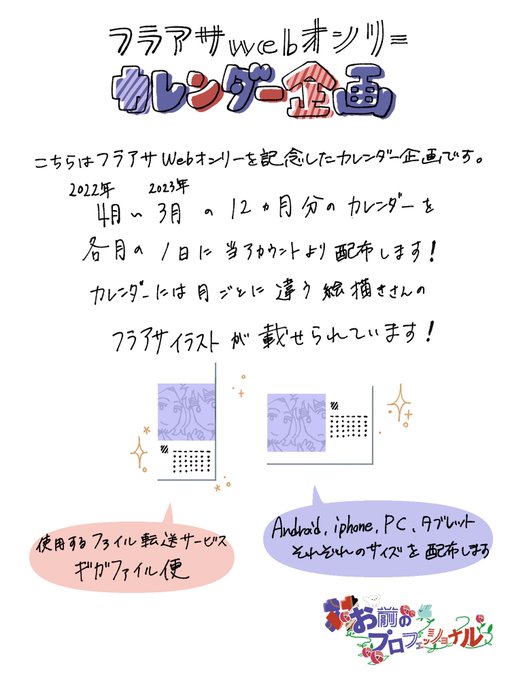 フラアサwebオンリー
カレンダー企画
こちらはフラアサWebオンリーを記念したカレンダー企画です。
2022年 2023年
4月〜3月の12ヵ月分のカレンダーを
各月の1日に当アカウントより配布します!
カレンダーには月ごとに違う絵描きさんの
フラアサイラストが載せられています!
使用するファイル転送サービス
ギガファイル便
Android, iphone, PC、タブレット
それぞれのサイズを配布します
お前の
プロフェッショナル